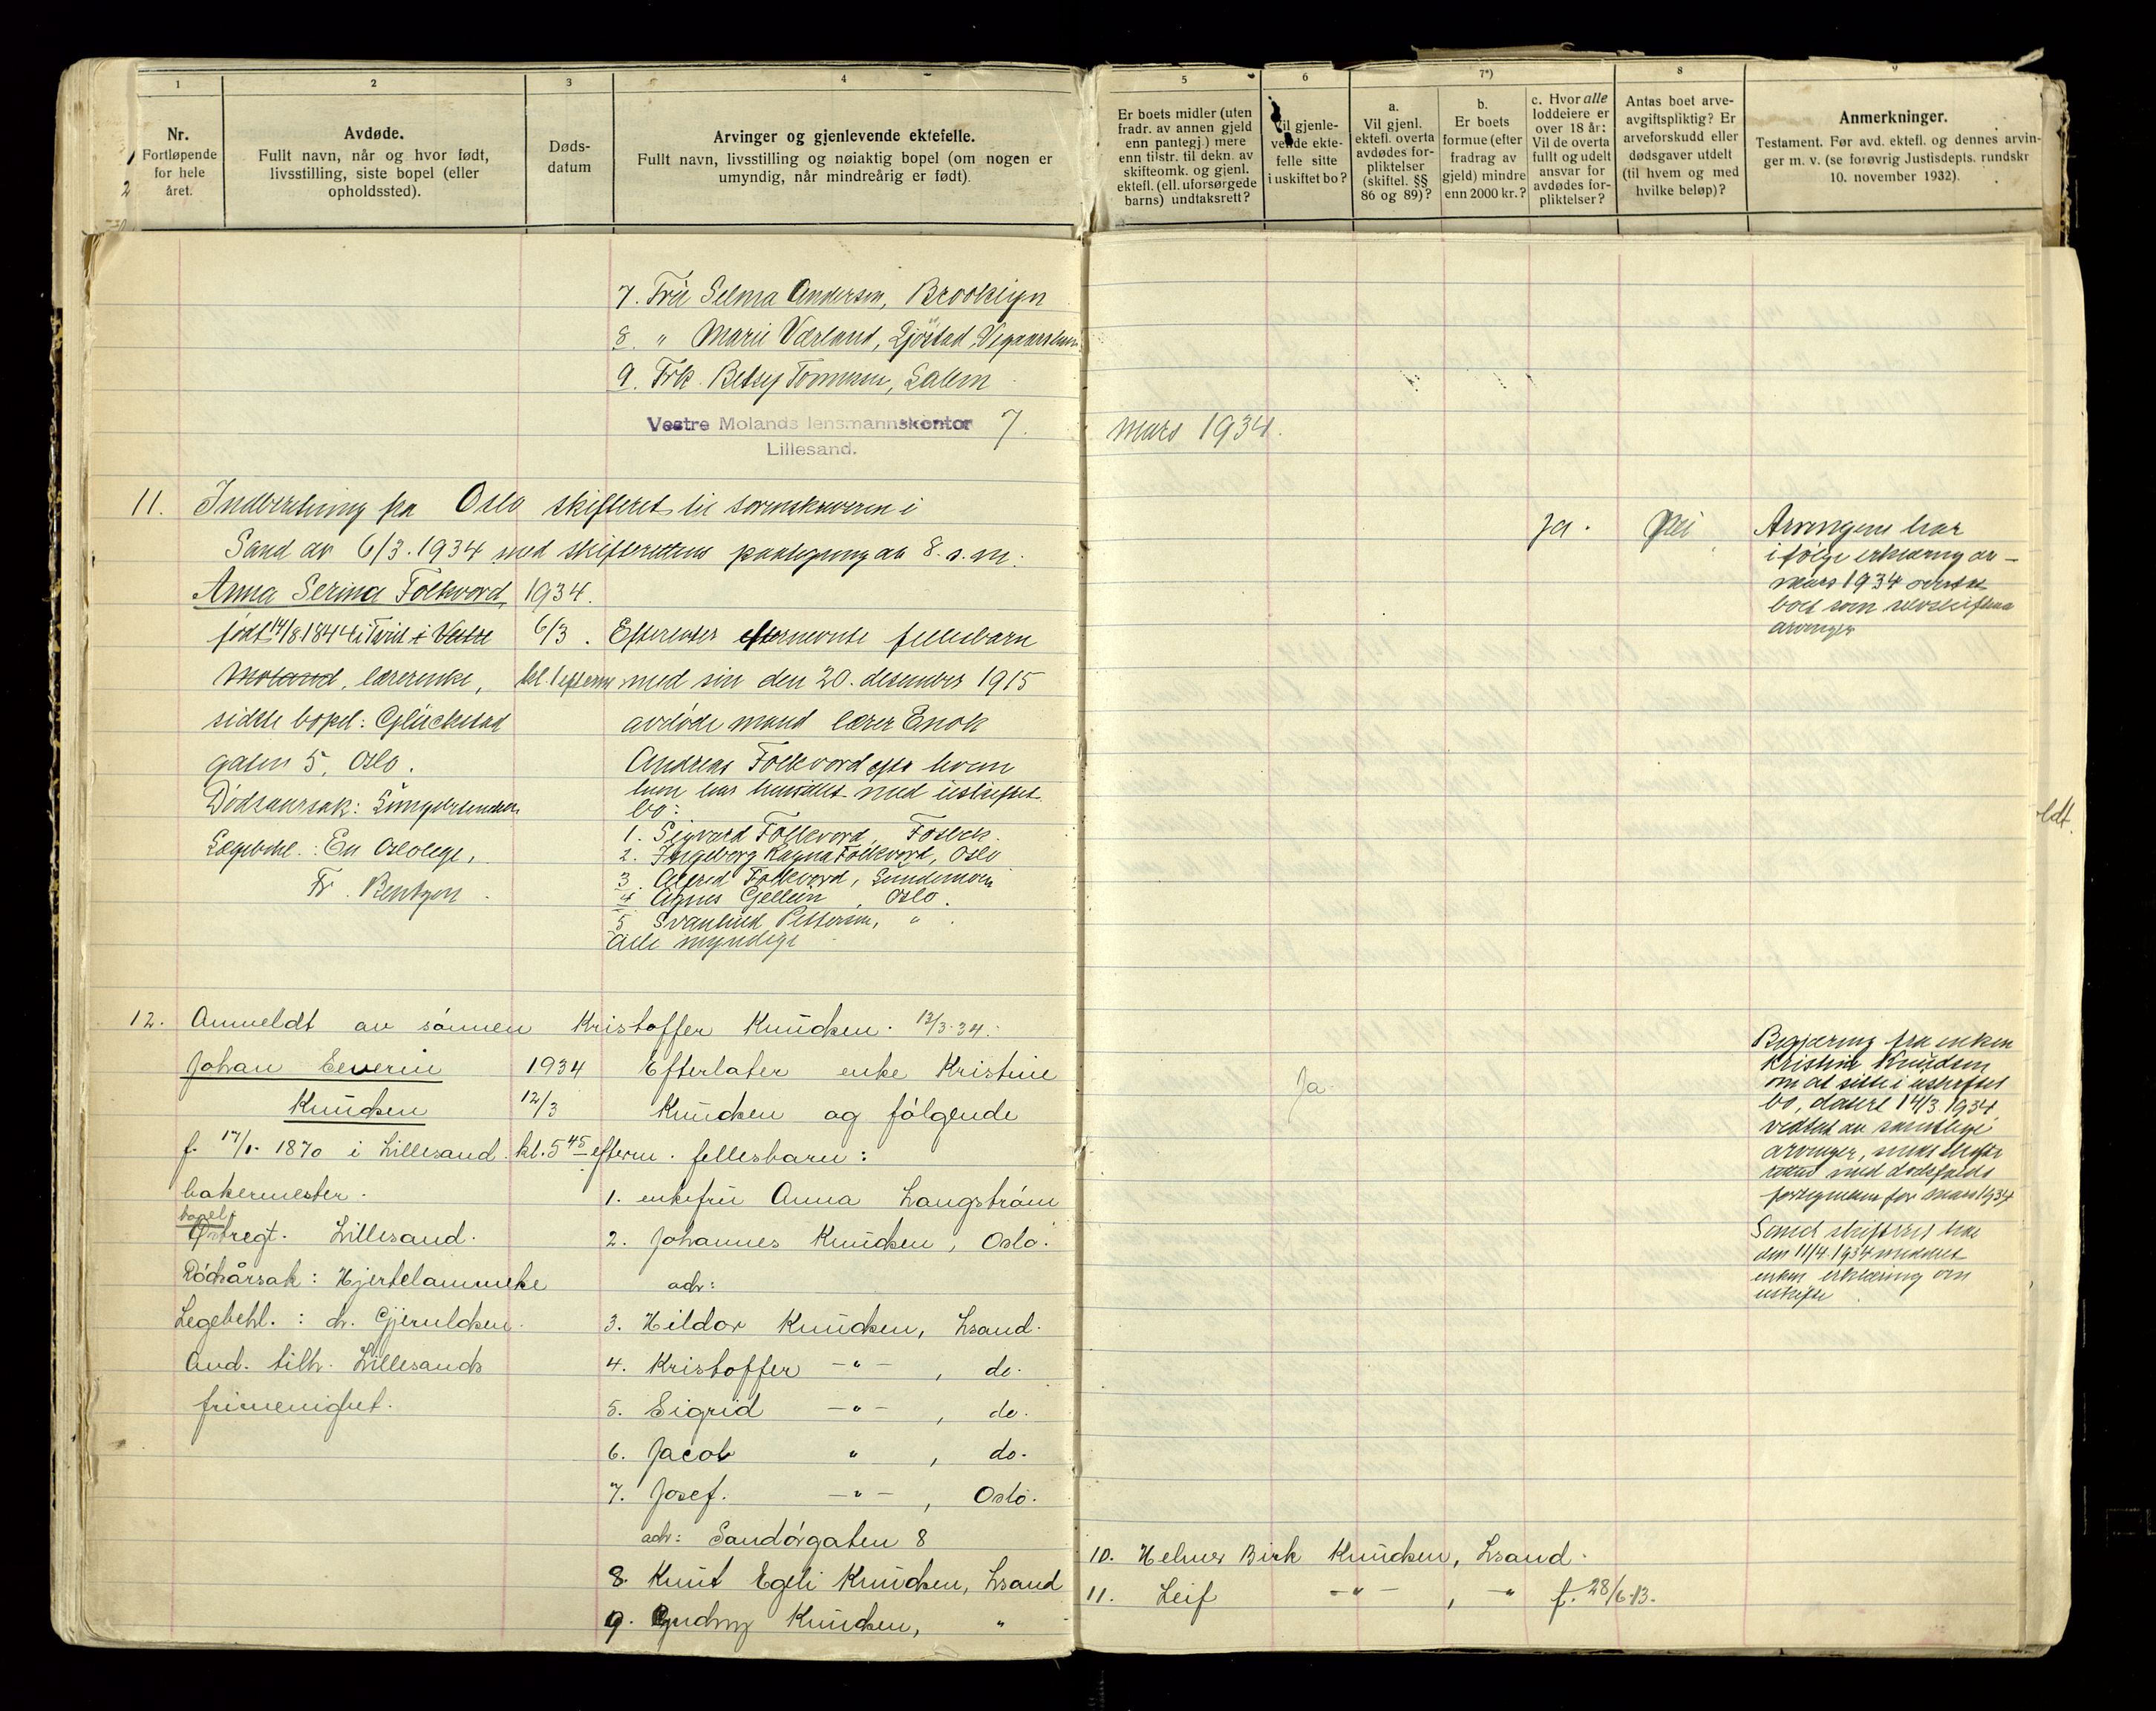 1
Nr.
Fortløpende
for hele
året.
2
Avdøde.
Fullt navn, når og hvor født,
livsstilling, siste bopel (eller
opholdssted).
3
Døds-
datum
4
Arvinger og gjenlevende ektefelle.
Fullt navn, livsstilling og nøiaktig bopel (om nogen er
umyndig, når mindreårig er født).
5
Er boets midler (uten
fradr. av annen gjeld
enn pantegj.) mere
enn tilstr. til dekn. av
skifteomk. og gjenl.
ektefl. (ell. uforsørgede
barns) undtaksrett?
6
Vil gjenle-
vende ekte-
felle sitte
i uskiftet bo?
7*)
a.
Vil gjenl.
ektefl. overta
avdødes for-
pliktelser
(skiftel. §§
86 og 89)?
b.
Er boets
formue (efter
fradrag av
gjeld) mindre
enn 2000 kr.?
c. Hvor alle
loddeiere er
over 18 år:
Vil de overta
fullt og udelt
ansvar for
avdødes for-
pliktelser?
8
Antas boet arve-
avgiftspliktig? Er
arveforskudd eller
dødsgaver utdelt
(til hvem og med
hvilke beløp)?
9
Anmerkninger.
Testament. Før avd. ektefl. og dennes arvin-
ger m. v. (se forøvrig Justisdepts. rundskr
10. november 1932).
7. Frü Selma Andersen, Brooklyn
8. " Marie Værland, Ljøstad,
9. Frk. Betsy Tommsen, Salem
Vestre Molands lensmannskontor 7. mars 1934.
Lillesand.
11. Indberetning fra Oslo skifteret til sorenskriveren i
Sand av 6/3.1934 med skifterettens paategning av 8. s. m.
Anna Serina Folkvord,
født 14/8 1844 i Tveit i Vestre
Moland, lærerenke,
sidste bopel: Glückstad
gaten 5, Oslo.
Dødsaarsak:
Lægebehl.: En Oslolege,
Fr. Bentzen.
1934.
6/3.
kl. 1 efterm
Efterlater efternevnte fellesbarn
med sin den 20. desember 1915
avdøde mand lærer Enok
Andreas Folkvord efter hvem
hun har hensittet med uskiftet
bo:
1. Sigvard Folkvord,
2. Ingeborg Ragna Folkvord, Oslo
3. Alfred Folkvord,
4 Agnes Gjellein, Oslo.
5 Svanhild Pettersen, "
Alle myndige
Ja.
Nei
Arvingene har
ifølge erklæring av –
mars 1934 overtat
boet som selvskiftende
arvinger
12. Anmeldt av sønnen Kristoffer Knudsen. 13/3.34.
Johan Severin
Knudsen
f. 17/1. 1870 i Lillesand.
bakermester.
bopel
Østregt. Lillesand.
Dødsårsak: Hjertelammelse
Legebehl.: dr. Gjeruldsen.
And. tilh. Lillesands
frimenighet.
1934
12/3
kl. 5 45 efterm.
Efterlater enke Kristine
Knudsen og følgende
fellesbarn:
1. enkefru Anna Langstrøm
2. Johannes Knudsen, Oslo.
adr:
3. Hildor Knudsen, Lsand.
4. Kristoffer – " – , do.
5. Sigrid – " – , do.
6. Jacob " , do.
7. Josef. – " – , Oslo.
adr: Sandørgaten 8
8. Knut Egeli Knudsen, Lsand
9. Gudny Knudsen, "
Ja.
Begjæring fra enken
Kristine Knudsen
om at sitte i uskiftet
bo, datert 14/3 1934,
vedtat av samtlige
arvinger, skifte
retten med dødsfalds
fortegnelsen for mars 1934
Sand skifterett har
den 11/4 1934 meddelt
enken erklæring om
uskifte.
10. Helmer Birk Knudsen, Lsand.
11. Leif – " – , – " f. 28/6-13.
ldt.